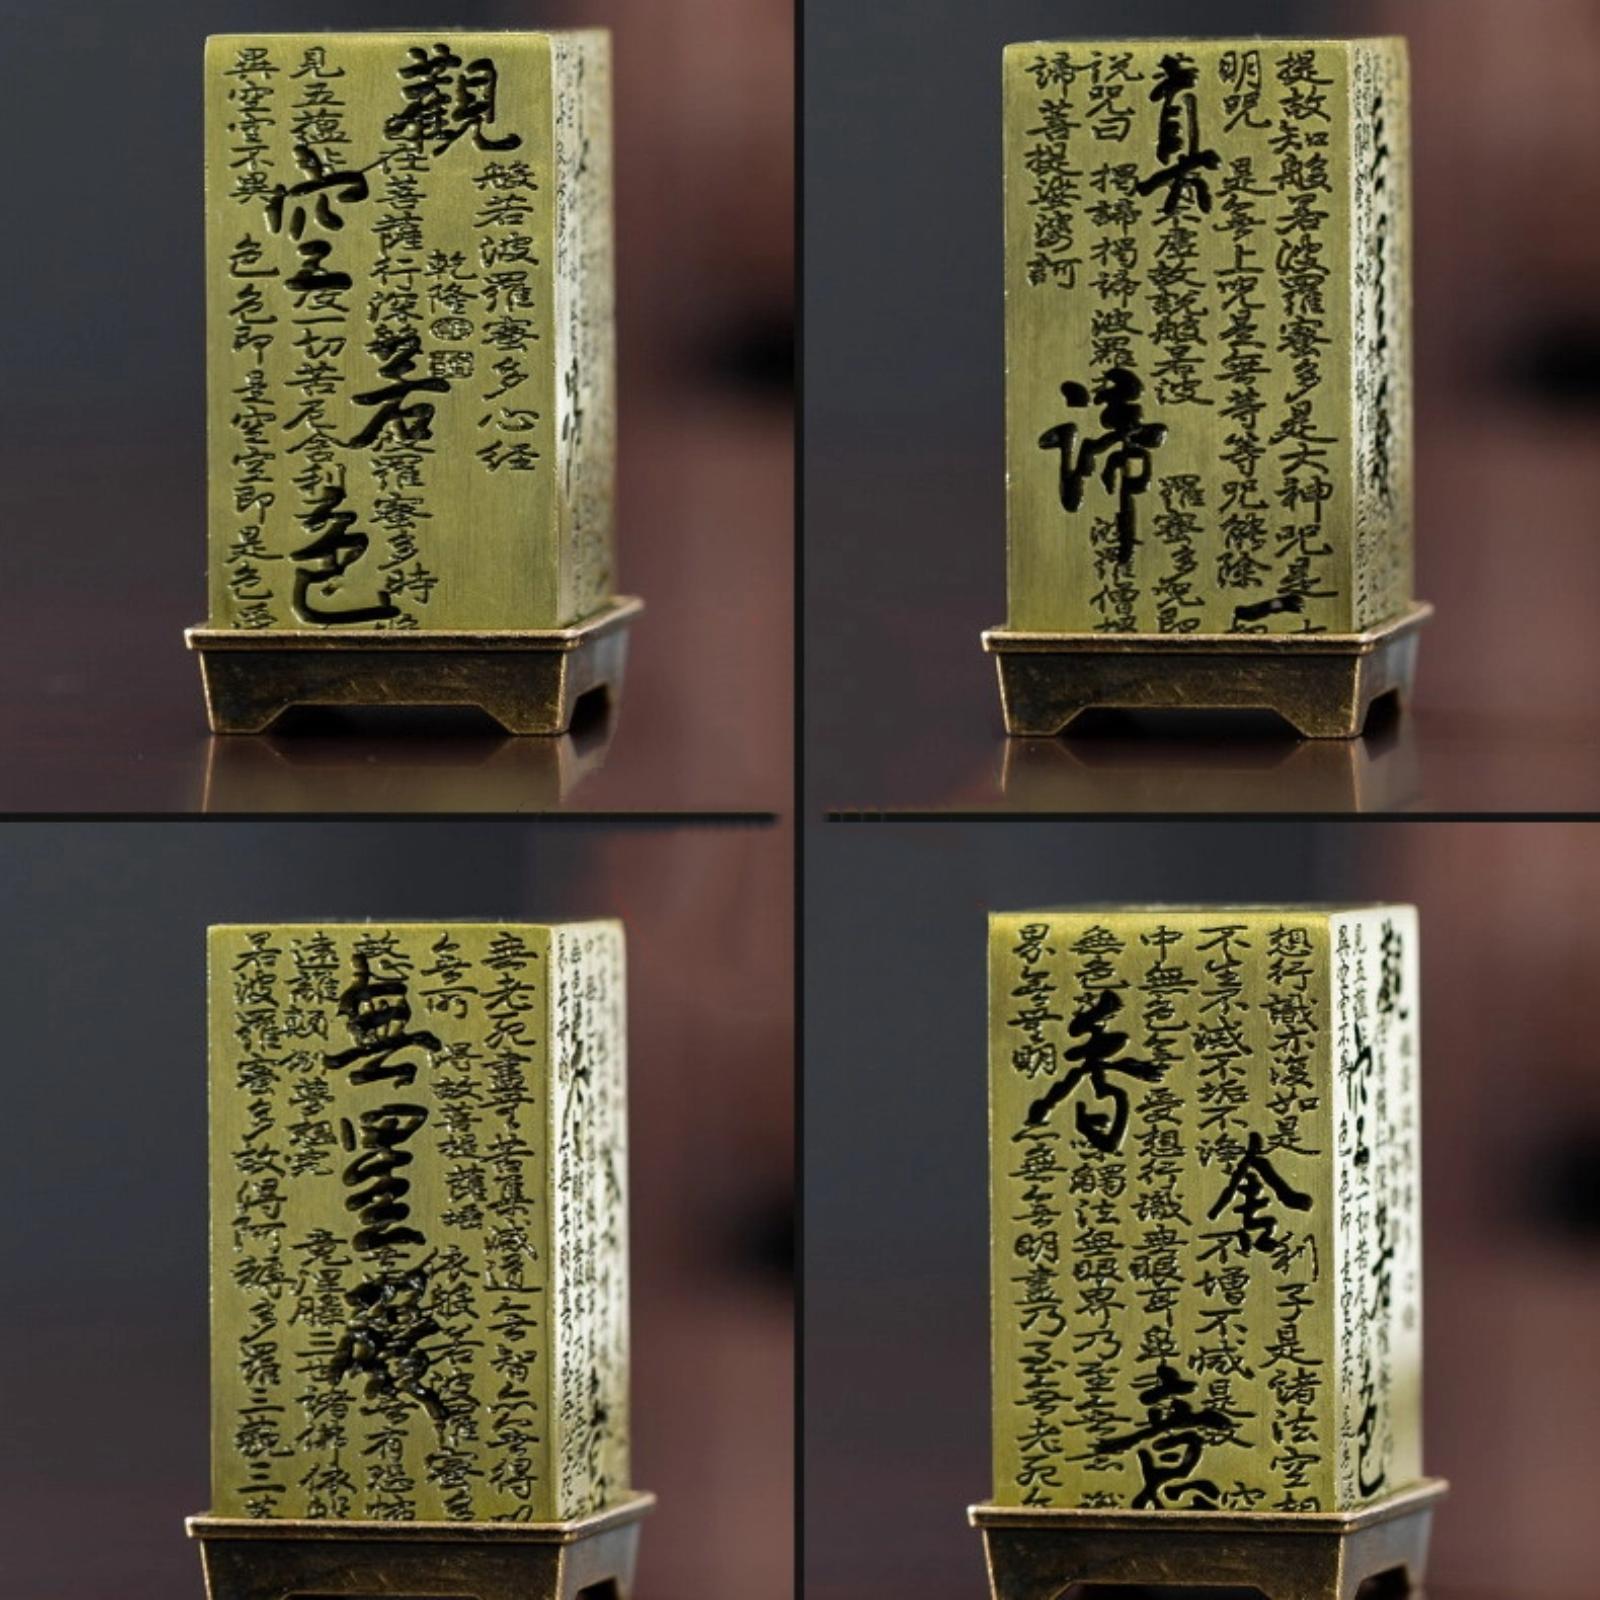 般若波羅蜜多心経
乾隆
觀在菩薩行深般若波羅蜜多時
見五蘊皆空度一切苦厄舍利子色
異空空不異色色即是空空即是色受
提故知般若波羅蜜多是大神咒是
明咒是無上咒是無等等咒能除一
真實不虛故說般若波羅蜜多咒即
説咒曰揭諦揭諦波羅揭諦波羅僧揭
諦菩提娑婆訶
無老死盡無苦集滅道無智亦無得以
無所得故菩提薩埵依般若波羅蜜多
故無罣礙無有恐怖
遠離顛倒夢想究竟涅槃三世諸佛依般
若波羅蜜多故得阿耨多羅三藐三菩
想行識亦復如是舍利子是諸法空相
不生不滅不垢不淨不增不減是故空
中無色無受想行識無眼耳鼻舌身意
無色聲香味觸法無眼界乃至無意識
界無無明亦無無明盡乃至無老死亦